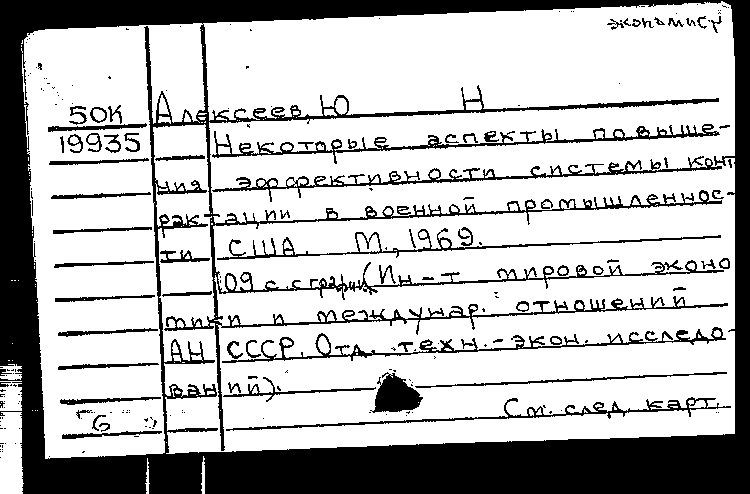 экономист
50К Алексеев, Ю Н
19935 Некоторые аспекты повыше-
ния эффективности системы конт
рактации в военной промышленнос-
ти США. М., 1969.
109 с. с график (Ин-т мировой эконо
мики и междунар. отношений
АН СССР. Отд. техн.-экон. исследо-
ваний).
6 См. след. карт.